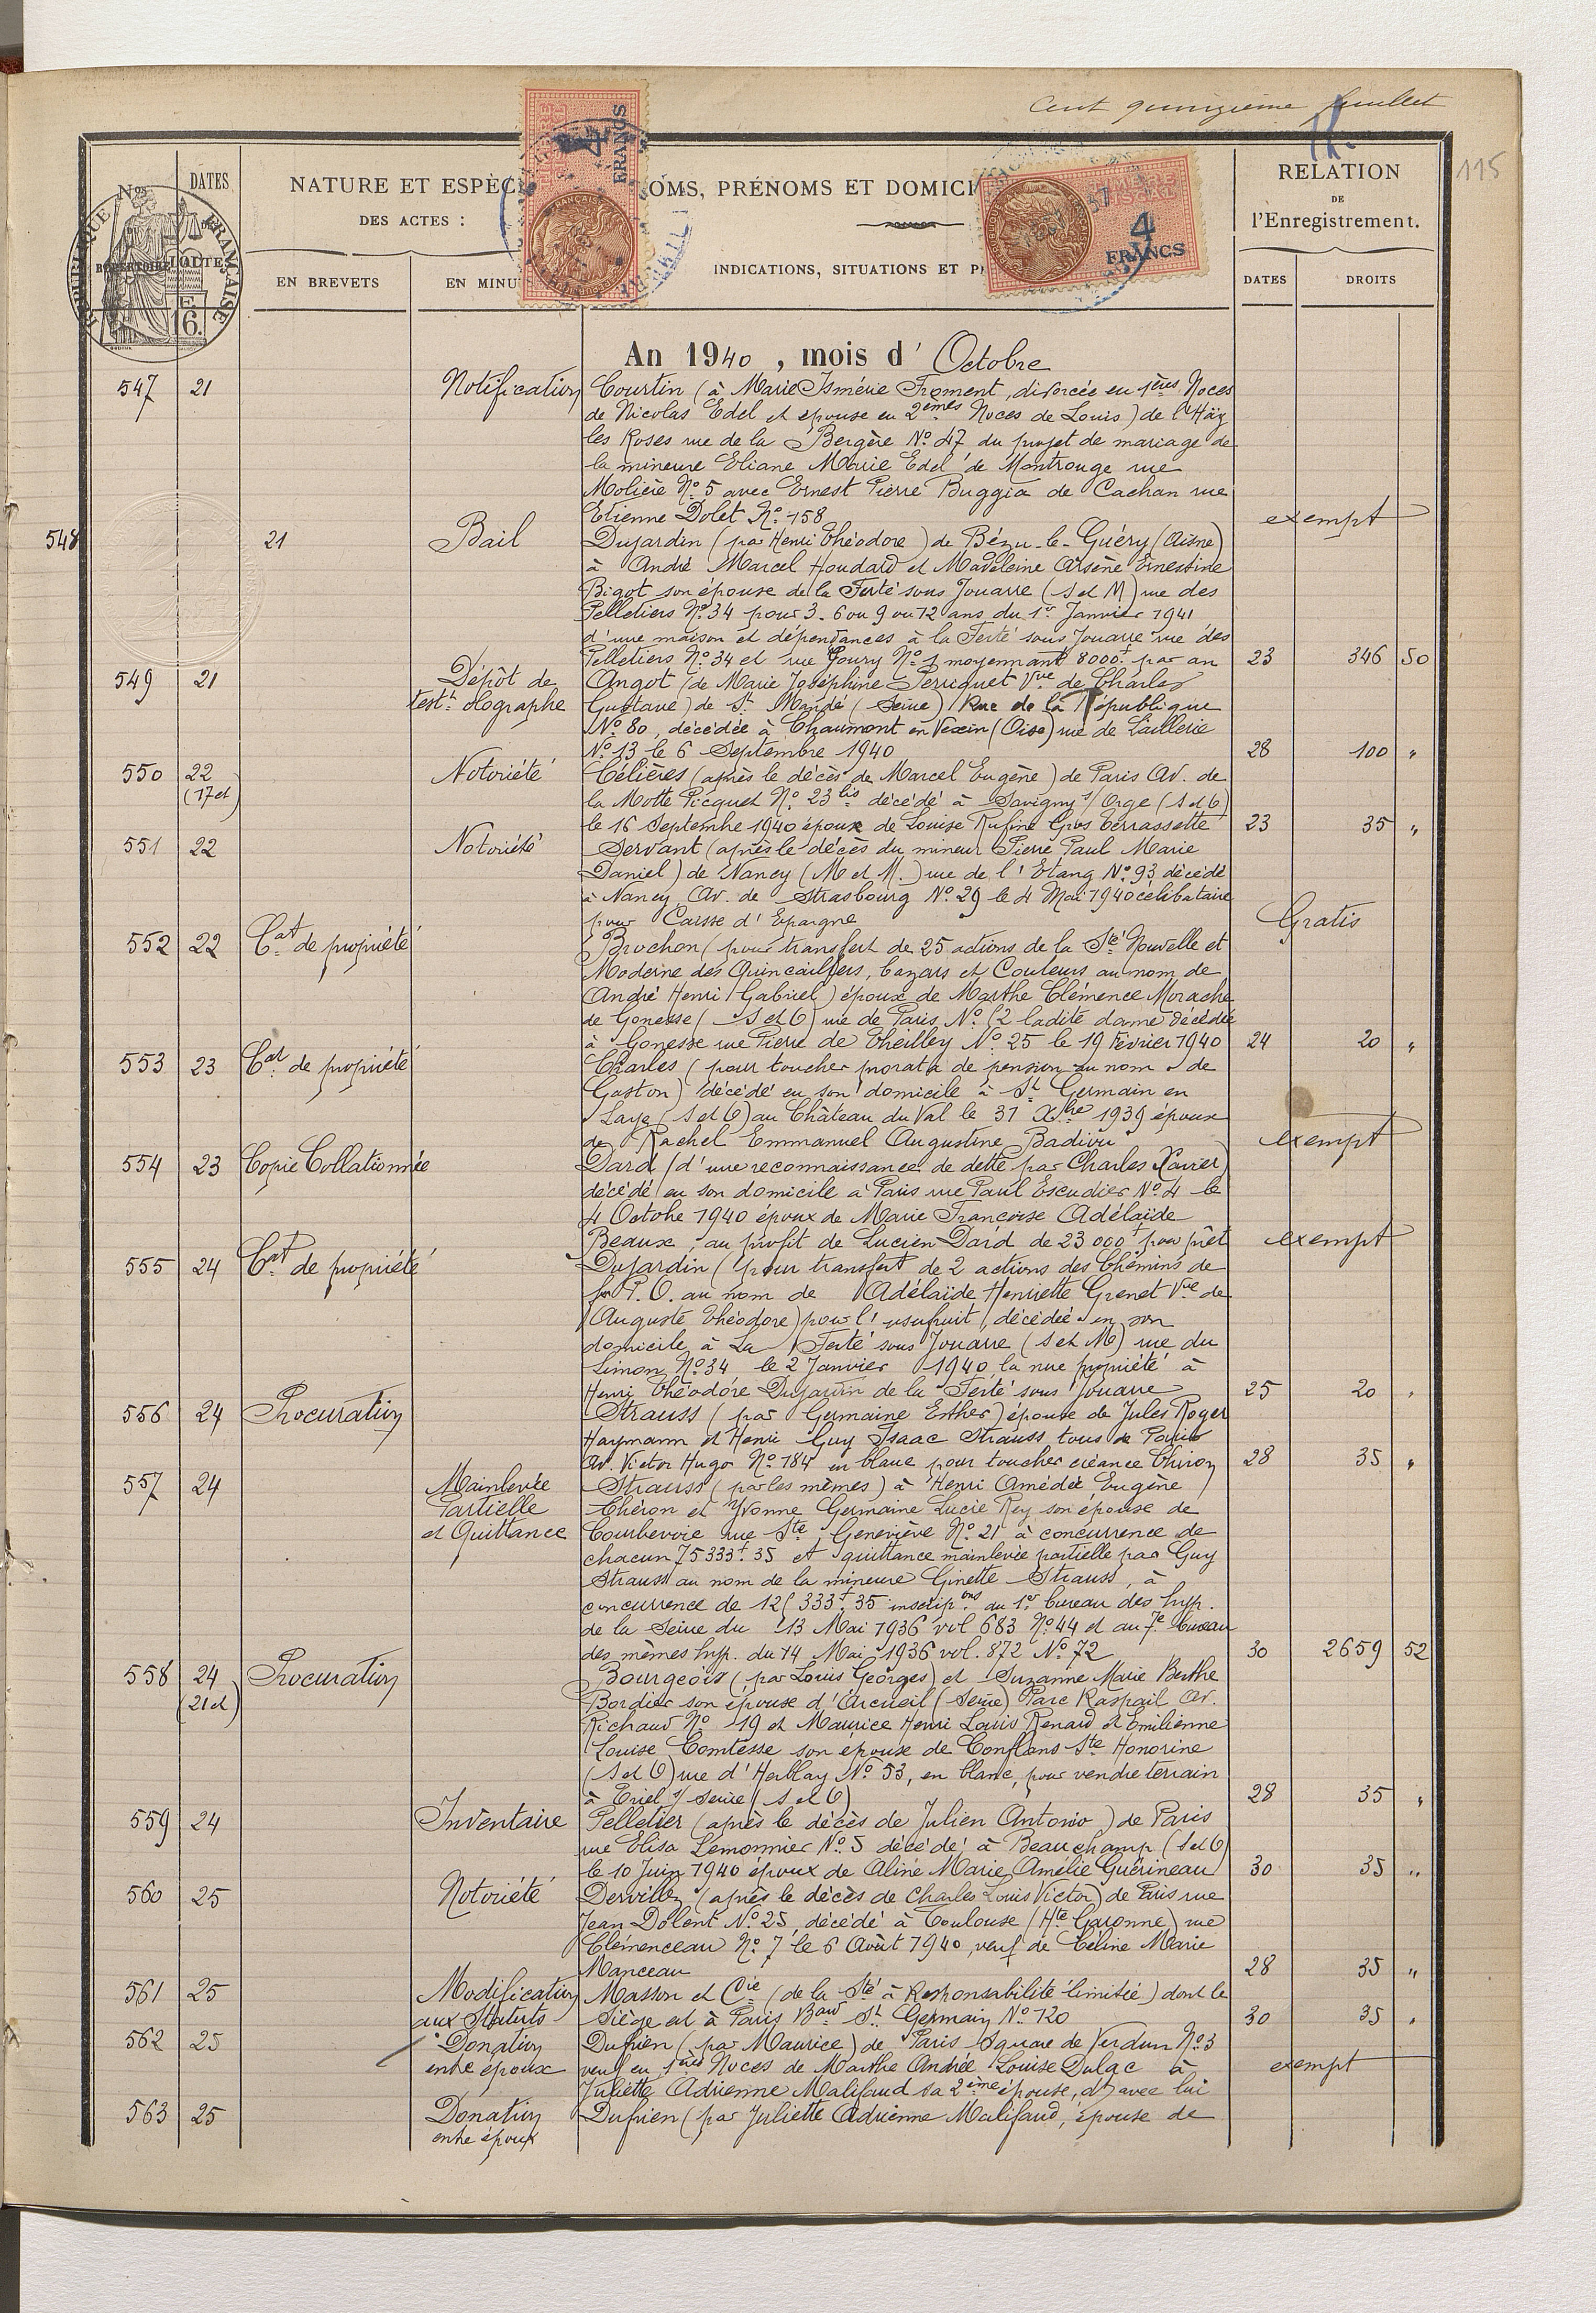 Cent quinzième feuillet
115
Nos
DATES
NATURE ET ESPÈC
DES ACTES :
EN BREVETS
EN MINU
OMS, PRÉNOMS ET DOMICI
INDICATIONS, SITUATIONS ET P
RELATION
DE
l'Enregistrement.
DATES
DROITS
4
FRANCS
4
FRANCS
An 1940, mois d' Octobre
547 21 Notification Courtin (à Marie Ismérie Froment, divorcée en 1ères Noces
de Nicolas Edel et épouse en 2èmes Noces de Louis) de l'Häy
les Roses rue de la Bergère No 47 du projet de mariage de
la mineure Eliane Marie Edel de Montrouge rue
Molière No 5 avec Ernest Pierre Buggia de Cachan rue
Etienne Dolet No 158 exempt
548 21 Bail Dujardin (par Henri Théodore) de Bézu-le-Guéry (Aisne)
à André Marcel Houdard et Madeleine Arsène Ernestine
Bigot son épouse de la Ferté sous Jouarre (S et M) rue des
Pelletiers No 34 pour 3. 6 ou 9 ou 12 ans du 1er Janvier 1941
d'une maison et dépendances à la Ferté sous Jouarre rue des
Pelletiers No 34 et rue Goury No 1 moyennant 8000f par an 23 346 50
549 21 Dépôt de Angot (de Marie Joséphine Perriquet Vve de Charles
testt olographe Gustave) de St Mandé (Seine) Rue de la République
No 80, décédée à Chaumont en Vexin (Oise) rue de Laillerie
No 13 le 6 Septembre 1940 28 100 "
550 22 Notoriété Célières (après le décès de Marcel Eugène) de Paris Av. de
(17 et) la Motte Picquet No 23 bis décédé à Savigny s/Orge (S et O)
le 16 Septembre 1940 époux de Louise Rufine Gros Terrassette 23 35 "
551 22 Notoriété Servant (après le décès du mineur Pierre Paul Marie
Daniel) de Nancy (M et M.) rue de l'Etang No 93 décédé
à Nancy Av. de Strasbourg No 29 le 4 Mai 1940 célibataire
pour Caisse d'Epargne Gratis
552 22 Cat de propriété Brochon (pour transfert de 25 actions de la Sté Nouvelle et
Moderne des Quincailliers, bazars et Couleurs au nom de
André Henri Gabriel) époux de Marthe Clémence Morache
de Gonesse (S et O) rue de Paris No 12 ladite dame décédée
à Gonesse rue Pierre de Theilley No 25 le 19 Février 1940 24 20 "
553 23 Cat de propriété Charles (pour toucher prorata de pension au nom de
Gaston) décédé en son domicile à St Germain en
Laye (S et O) au Château du Val le 31 Xbre 1939 époux
de Rachel Emmanuel Augustine Badiou exempt
554 23 Copie Collationnée Dard (d'une reconnaissance de dette par Charles Xavier)
décédé en son domicile à Paris rue Paul Escudier No 4 le
4 Octobre 1940 époux de Marie Françoise Adélaïde
Beaux, au profit de Lucien Dard de 23 000f pour prêt exempt
555 24 Cat de propriété Dujardin (pour transfert de 2 actions des Chemins de
fer P.O. au nom de Adélaïde Henriette Grenet Vve de
Auguste Théodore) pour l'usufruit, décédée en son
domicile à La Ferté sous Jouarre (S et M) rue du
Limon No 34 le 2 Janvier 1940, la nue propriété à
Henri Théodore Dujardin de la Ferté sous Jouarre 25 20 "
556 24 Procuration Strauss (par Germaine Esther) épouse de Jules Roger
Haymann et Henri Guy Isaac Strauss tous de Paris
Av. Victor Hugo No 184 en blanc pour toucher créance Chiron 28 35 "
557 24 Mainlevée Strauss (par les mêmes) à Henri Amédée Eugène
Partielle Chéron et Yvonne Germaine Lucie Rey son épouse de
et Quittance Courbevoie rue Ste Geneviève No 21 à concurrence de
chacun 75333f 35 et quittance mainlevée partielle par Guy
Strauss au nom de la mineure Ginette Strauss, à
concurrence de 125 333f 35 inscriptons au 1er bureau des hyp.
de la Seine du 13 Mai 1936 vol 683 No 44 et au 7e bureau
des mêmes hyp. du 14 Mai 1936 vol. 872 No 72 30 2659 52
558 24 Procuration Bourgeois (par Louis Georges) et Suzanne Marie Berthe
(21 et) Bordier son épouse d'Arcueil (Seine) Parc Raspail Av.
Richaud No 19 et Maurice Henri Louis Renard et Emilienne
Louise Comtesse son épouse de Conflans Ste Honorine
(S et O) rue d'Herblay No 53, en blanc, pour vendre terrain
à Triel s/ Seine (S et O) 28 35 "
559 24 Inventaire Pelletier (après le décès de Julien Antonio) de Paris
rue Elisa Lemonnier No 5 décédé à Beauchamp (S et O)
le 10 Juin 1940 époux de Aline Marie Amélie Guérineau 30 35 "
560 25 Notoriété Derville (après le décès de Charles Louis Victor) de Paris rue
Jean Dolent No 25, décédé à Toulouse (Hte Garonne) rue
Clémenceau No 7 le 6 Août 1940, veuf de Céline Marie
Manceau 28 35 "
561 25 Modification Masson et Cie (de la Sté à Responsabilité limitée) dont le
aux Statuts Siège est à Paris Bard St Germain No 120 30 35 "
562 25 Donation Dufrien (par Maurice) de Paris Square de Verdun No 3
entre époux veuf en 1ères Noces de Marthe Andrée Louise Dulac à exempt
Juliette Adrienne Malifaud sa 2ème épouse, dt avec lui
563 25 Donation Dufrien (par Juliette Adrienne Malifaud, épouse de
entre époux